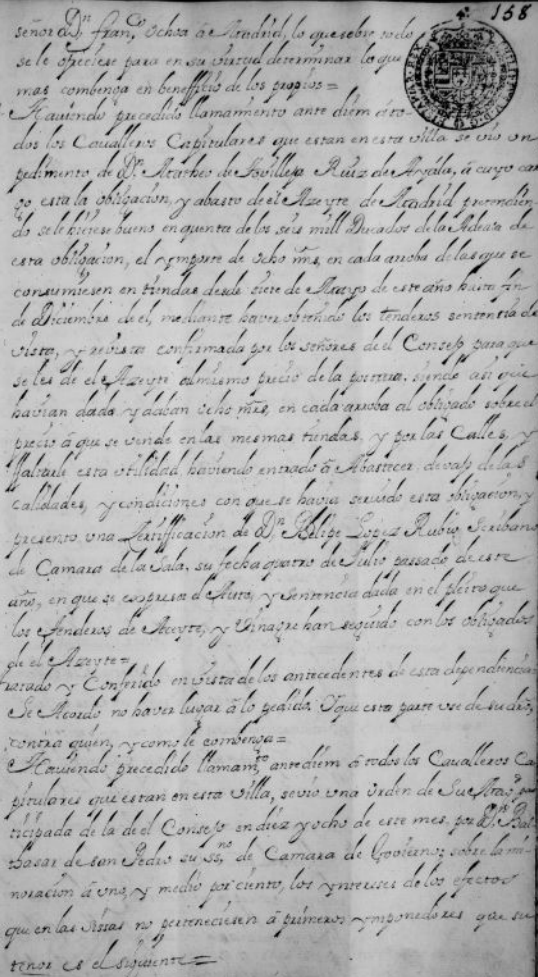 158
señor Dn. franco. Ochoa â Madrid, lo que sobre todo
se le ofreciese para en su virtud determinar lo que
mas combenga en beneffiçio de los propios=
Haviendo precedido llamamiento ante diem â to-
dos los Cavalleros Capitulares que estan en esta Villa se vio un
pedimento de Dn. Matheo de Ruiz de â cuyo car
go esta la obligacion, y abasto de el Azeyte de Madrid pretendien
do se le hiciese bueno en quenta de los seis mill Ducados de la de
esta obligacion, el ymporte de ocho mrs, en cada arroba de las que se
consumiesen en tiendas desde siete de Mayo de este año hasta fin
de Diciembre de el, mediante haver obtenido los tenderos sentencia de
vista, y revista confirmada por los señores de el Consejo para que
se les dé el Azeyte al mismo precio de la postura, siendo asi que
havian dado y daban ocho mrs, en cada arroba al obligado sobre el
precio â que se vende en las mesmas tiendas, y por las Calles, y
faltarle esta utilidad, haviendo entrado â Abastecer, devajo de las
calidades, y condiciones con que se havia servido esta obligaçion, y
presento una Certifficacion de Dn. Phelipe Lopez Rubio, Scribano
de Camara de la Sala, su fecha quatro de Julio passado de este
año, en que se expresa el Auto, y Sentencia dada en el pleito que
los Tenderos de Aceyte, y Vinagre han seguido con los obligados
de el Azeyte=
tratado y Conferido en vista de los antecedentes de esta dependiencia
Se Acordo no haver lugar â lo pedido. Y que esta parte use de su dro,
contra quien, y como le combenga=
Haviendo precedido llamamto. ante diem â todos los Cavalleros Ca
pitulares que estan en esta Villa, se vio una orden de Su Magd. par
ticipada de la de el Consejo en diez y ocho de este mes, por Dn. Bal
thasar de san Pedro su ssno. de Camara de Govierno; sobre la mi-
noracion â uno, y medio por ciento, los yntereses de los efectos
que en las Sisas no perteneciesen â primeros ymponedores que su
tenor es el siguiente=